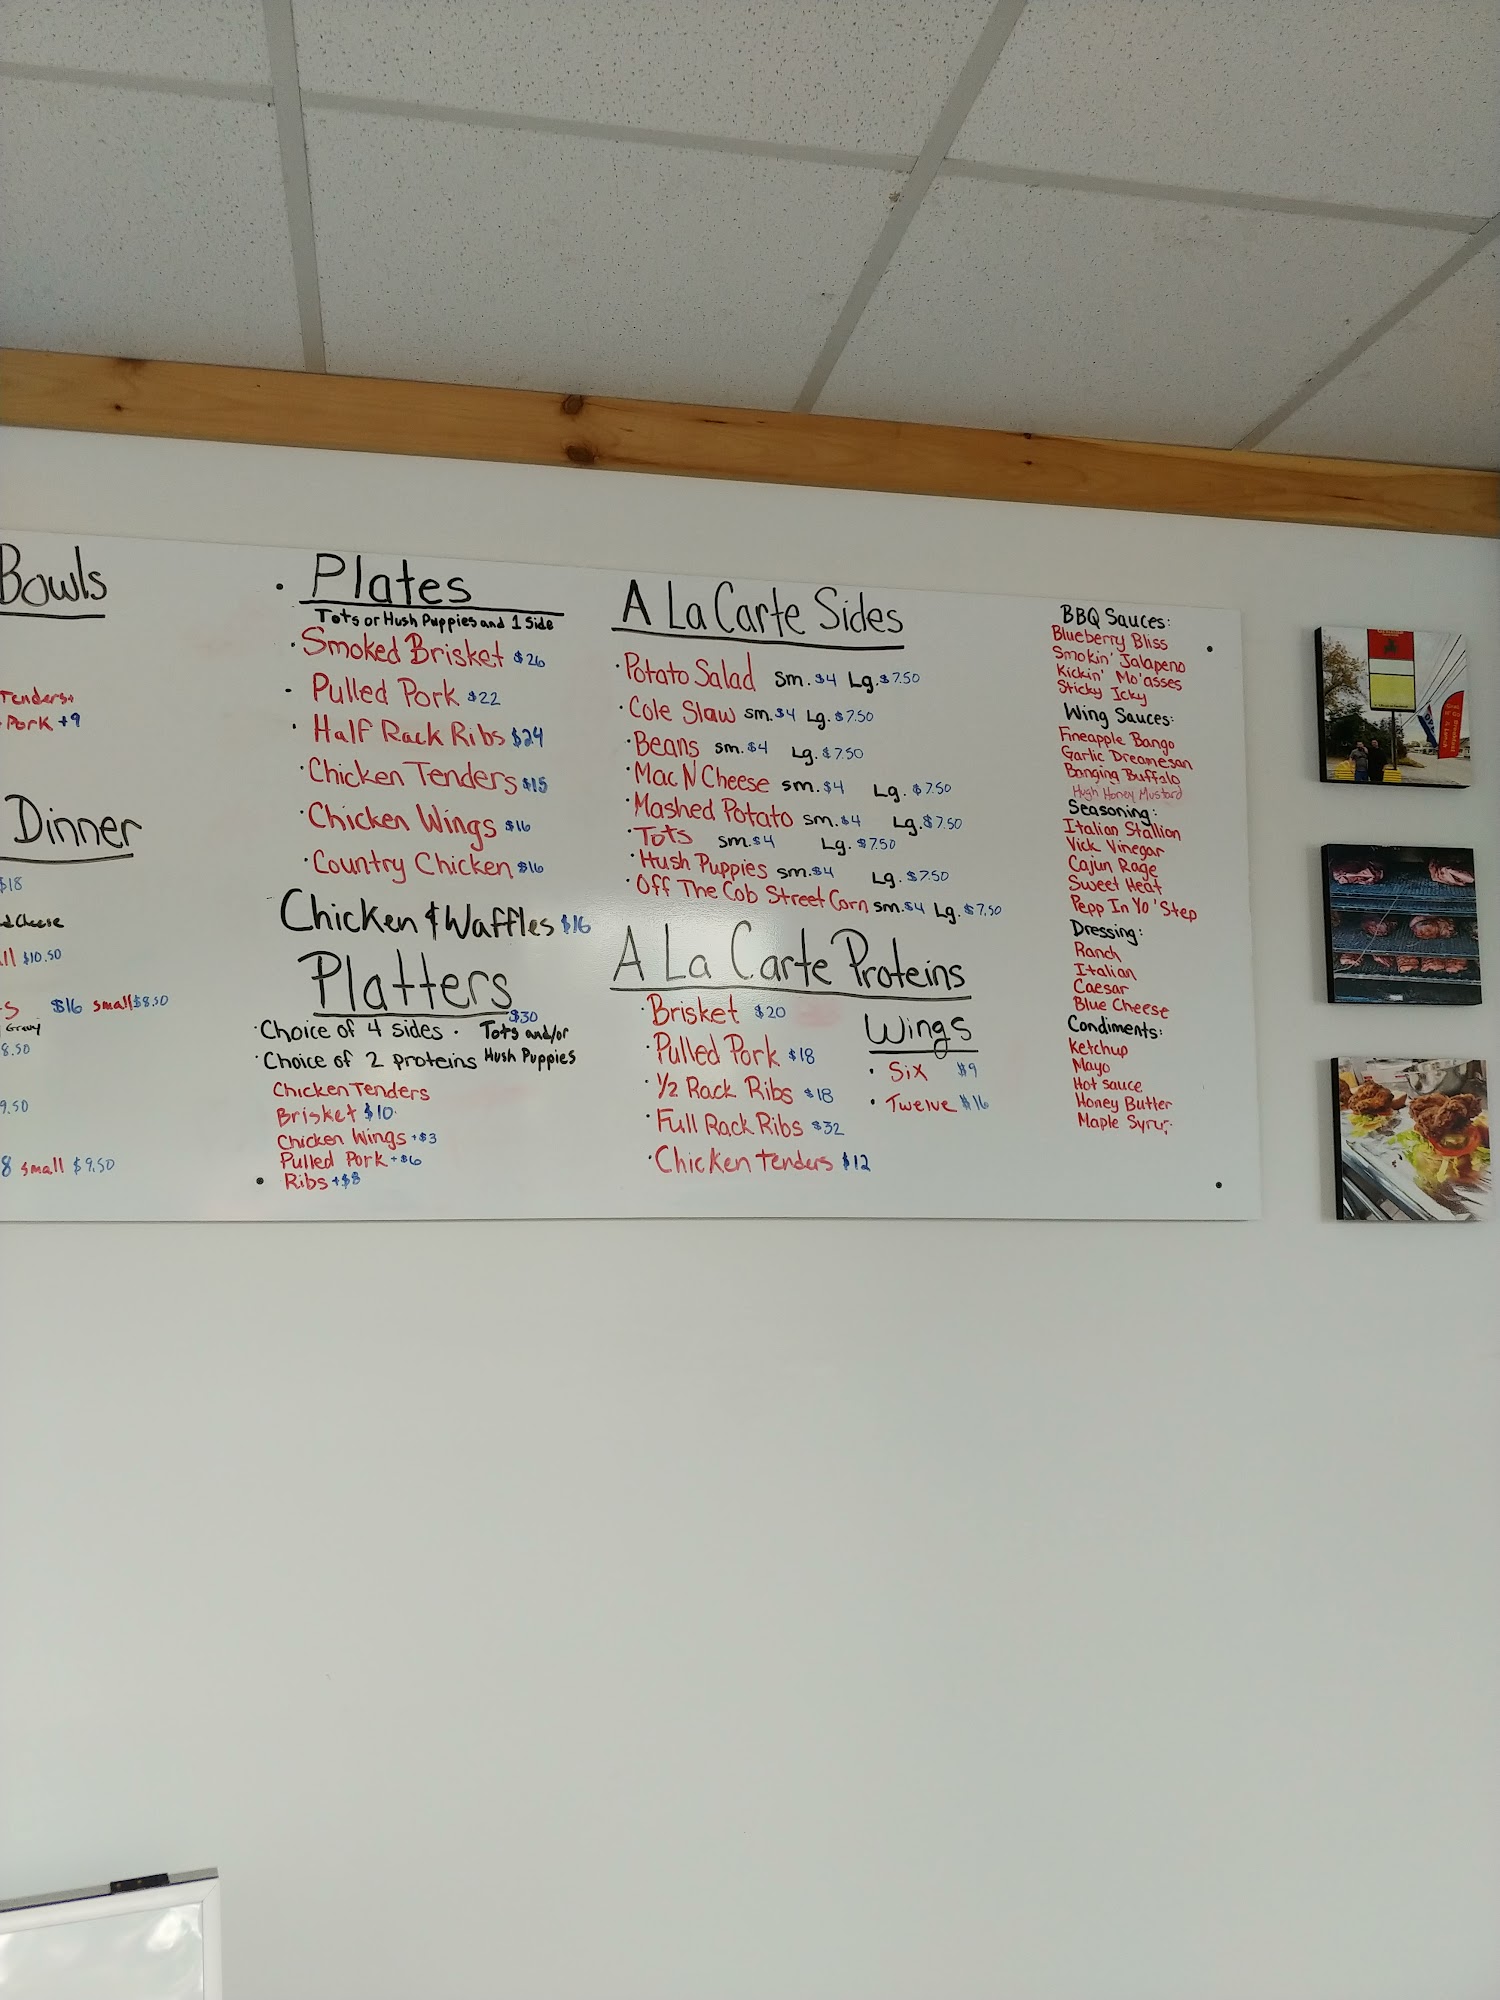 Bowls
Tenders+
Pork +9
Dinner
$18
Cheese
$10.50
$16 small $8.50
Gravy
8.50
9.50
8 small $9.50
Plates
Tots or Hush Puppies and 1 Side
·Smoked Brisket $26
·Pulled Pork $22
·Half Rack Ribs $24
·Chicken Tenders $15
·Chicken Wings $16
·Country Chicken $16
Chicken & Waffles $16
Platters
$30
·Choice of 4 sides · Tots and/or
·Choice of 2 proteins Hush Puppies
Chicken Tenders
Brisket $10
Chicken Wings +$3
Pulled Pork +$6
Ribs +$8
A La Carte Sides
·Potato Salad Sm. $4 Lg. $7.50
·Cole Slaw sm. $4 Lg. $7.50
·Beans sm. $4 Lg. $7.50
·Mac N Cheese sm. $4 Lg. $7.50
·Mashed Potato sm. $4 Lg. $7.50
·Tots sm. $4 Lg. $7.50
·Hush Puppies sm. $4 Lg. $7.50
·Off The Cob Street Corn sm. $4 Lg. $7.50
A La Carte Proteins
·Brisket $20
·Pulled Pork $18
·1/2 Rack Ribs $18
·Full Rack Ribs $32
·Chicken Tenders $12
Wings
·Six $9
·Twelve $16
BBQ Sauces:
Blueberry Bliss
Smokin' Jalapeno
Kickin' Mo'asses
Sticky Icky
Wing Sauces:
Fineapple Bango
Garlic Dreamesan
Banging Buffalo
Hugh Honey Mustard
Seasoning:
Italian Stallion
Vick Vinegar
Cajun Rage
Sweet Heat
Pepp In Yo' Step
Dressing:
Ranch
Italian
Caesar
Blue Cheese
Condiments:
Ketchup
Mayo
Hot sauce
Honey Butter
Maple Syrup